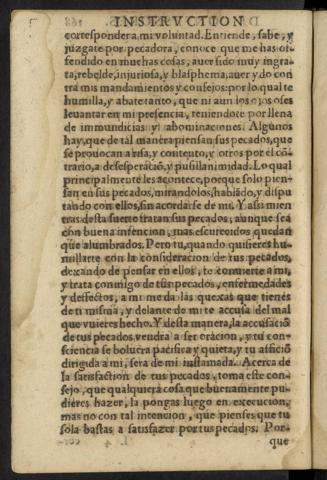 INSTRVCTION
correspondera, mi voluntad. Entiende, sabe, y
juzgate por pecadora, conoce que me has of-
fendido en muchas cosas, auer sido muy ingra-
ta, rebelde, injuriosa, y blasphema, auer y do con
tra mis mandamientos y consejos: por lo qual te
humilla, y abate tanto, que ni aun los ojos oses
leuantar en mi presencia, teniendote por llena
de immundicias y abominaciones. Algunos
hay, que de tal manera piensan sus pecados, que
se prouocan a risa, y contento, y otros por el cõ-
trario, a desesperaciõ, y pusillanimidad. Lo qual
principalmente les acontece, porque solo pien-
san en sus pecados, mirandolos, hablãdo, y dispu
tando con ellos, sin acordarse de mi. Y assi mien
tras desta suerte tratan sus pecados, aunque sea
con buena intencion, mas escurecidos quedan
que alumbrados. Pero tu, quando quisieres hu-
millarte con la consideracion de tus pecados,
dexando de pensar en ellos, te conuierte a mi,
y trata conmigo de tus pecados, enfermedades
y deffectos, a mi me da las quexas que tienes
de ti misma, y delante de mi te accusa del mal
que vuieres hecho. Y desta manera, la accusaciõ
de tus pecados vendra a ser oracion, y tu con-
sciencia se boluera pacifica y quieta, y tu afficiõ
dirigida a mi, sera de mi inflamada. Acerca de
la satisfaction de tus pecados, toma este con-
sejo, que qualquiera cosa que buenamente pu-
dieres hazer, la pongas luego en execucion,
mas no con tal intencion, que pienses que tu
sola bastas a satisfazer por tus pecados. Por-
que